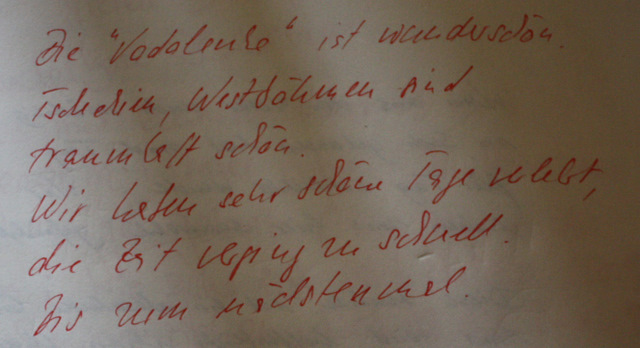 Die "Vodolenka" ist wunderschön.
Tschechien, Westböhmen sind
traumhaft schön.
Wir haben sehr schöne Tage verlebt,
die Zeit verging zu schnell.
Bis zum nächstenmal.